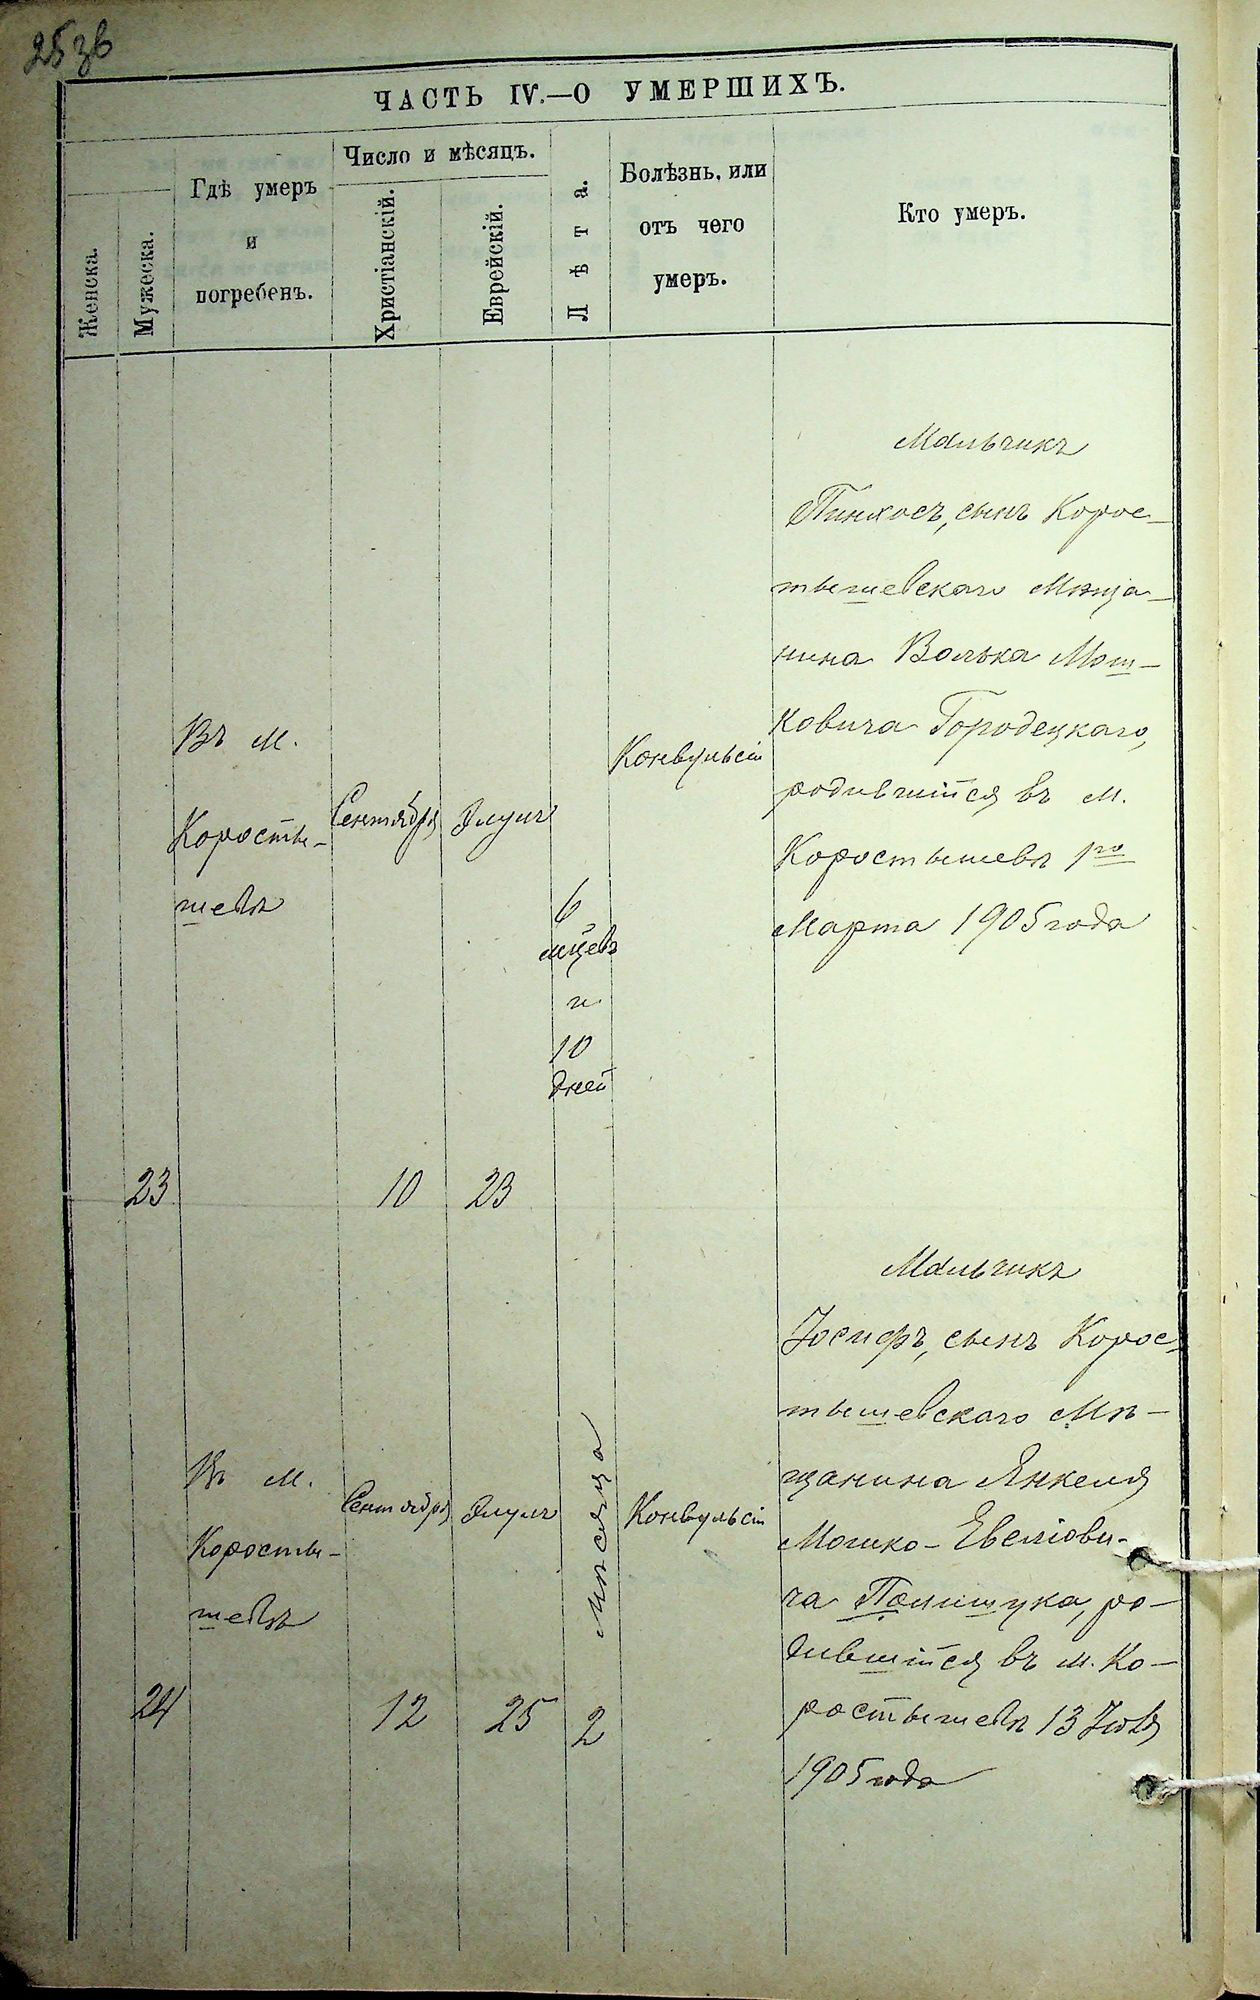 25 зв
ЧАСТЬ IV.—О УМЕРШИХЪ.
Женска.
Мужеска.
Гдѣ умеръ
и
погребенъ.
Число и мѣсяцъ.
Христіанскій.
Еврейскій.
Лѣта.
Болѣзнь, или
отъ чего
умеръ.
Кто умеръ.
23
Въ м.
Коросты-
шевѣ
Сентября
10
Элулъ
23
6
мцевъ
и
10
дней
Конвульсіи
Мальчикъ
Пинхосъ, сынъ Корос-
тышевскаго Мѣща-
нина Волька Мош-
ковича Городецкаго,
родившійся въ м.
Коростышевѣ 1го
Марта 1905 года
24
Въ м.
Коросты-
шевѣ
Сентября
12
Элулъ
25
2
мѣсяца
Конвульсіи
Мальчикъ
Іосифъ, сынъ Корос-
тышевскаго Мѣ-
щанина Янкеля
Мошко-Евеліови-
ча Полищука, ро-
дившійся въ м. Ко-
ростышевѣ 13 Іюля
1905 года